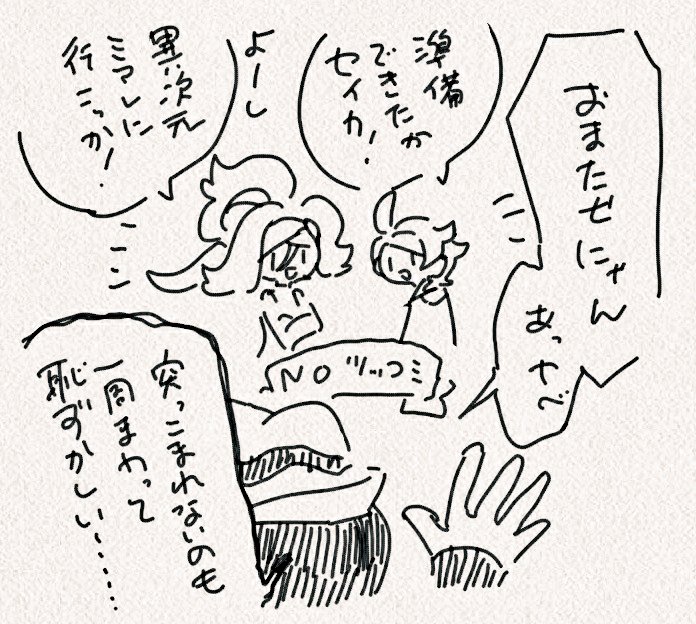 おまたせにゃん
あっやべ
準備
できたか
セイカ!
よーし
異次元
ミアレに
行こっか!
NO ツッコミ
突っこまれないのも
一周まわって
恥ずかしい……